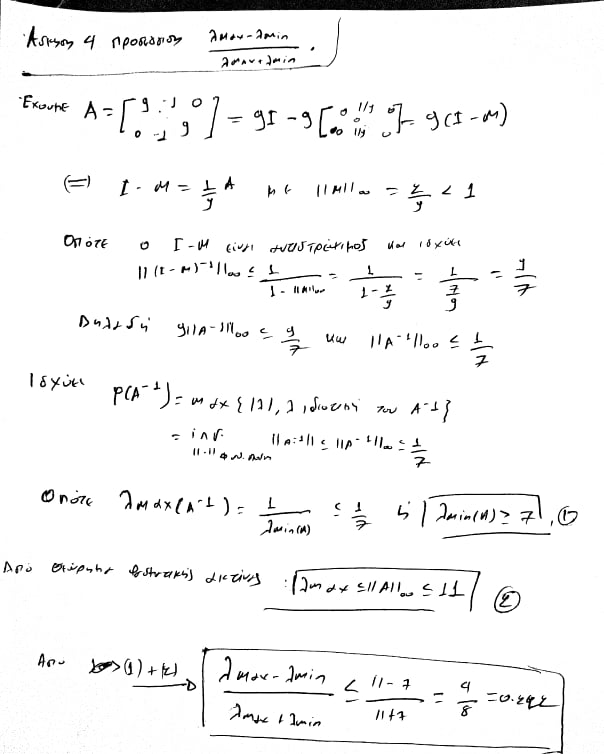 Άσκηση 4 προσδιορισμός λmax-λmin / λmax+λmin .
Έχουμε A = [9 -1 0 0 -1 9] = 9I - 9[0 1/9 0 0 1/9 0] = 9(I-M)
(=) I - M = 1/9 A με ||M||∞ = 2/9 < 1
Οπότε ο I-M είναι αντιστρέψιμος και ισχύει
||(I-M)^-1||∞ ≤ 1/(1-||M||∞) = 1/(1-2/9) = 1/(7/9) = 9/7
Δηλαδή 9||A^-1||∞ ≤ 9/7 και ||A^-1||∞ ≤ 1/7
Ισχύει ρ(A^-1) = max{|λ|, λ ιδιοτιμή του A^-1}
= inf ||A^-1|| ≤ ||A^-1||∞ ≤ 1/7
||·|| φυσ.
Οπότε λmax(A^-1) = 1/λmin(A) ≤ 1/7 ή λmin(A) ≥ 7, ①
Από θεώρημα φασματικής ακτίνας : λmax ≤ ||A||∞ ≤ 11 ②
Από (1)+(2) λmax-λmin / λmax+λmin ≤ 11-7 / 11+7 = 4/8 = 0.222